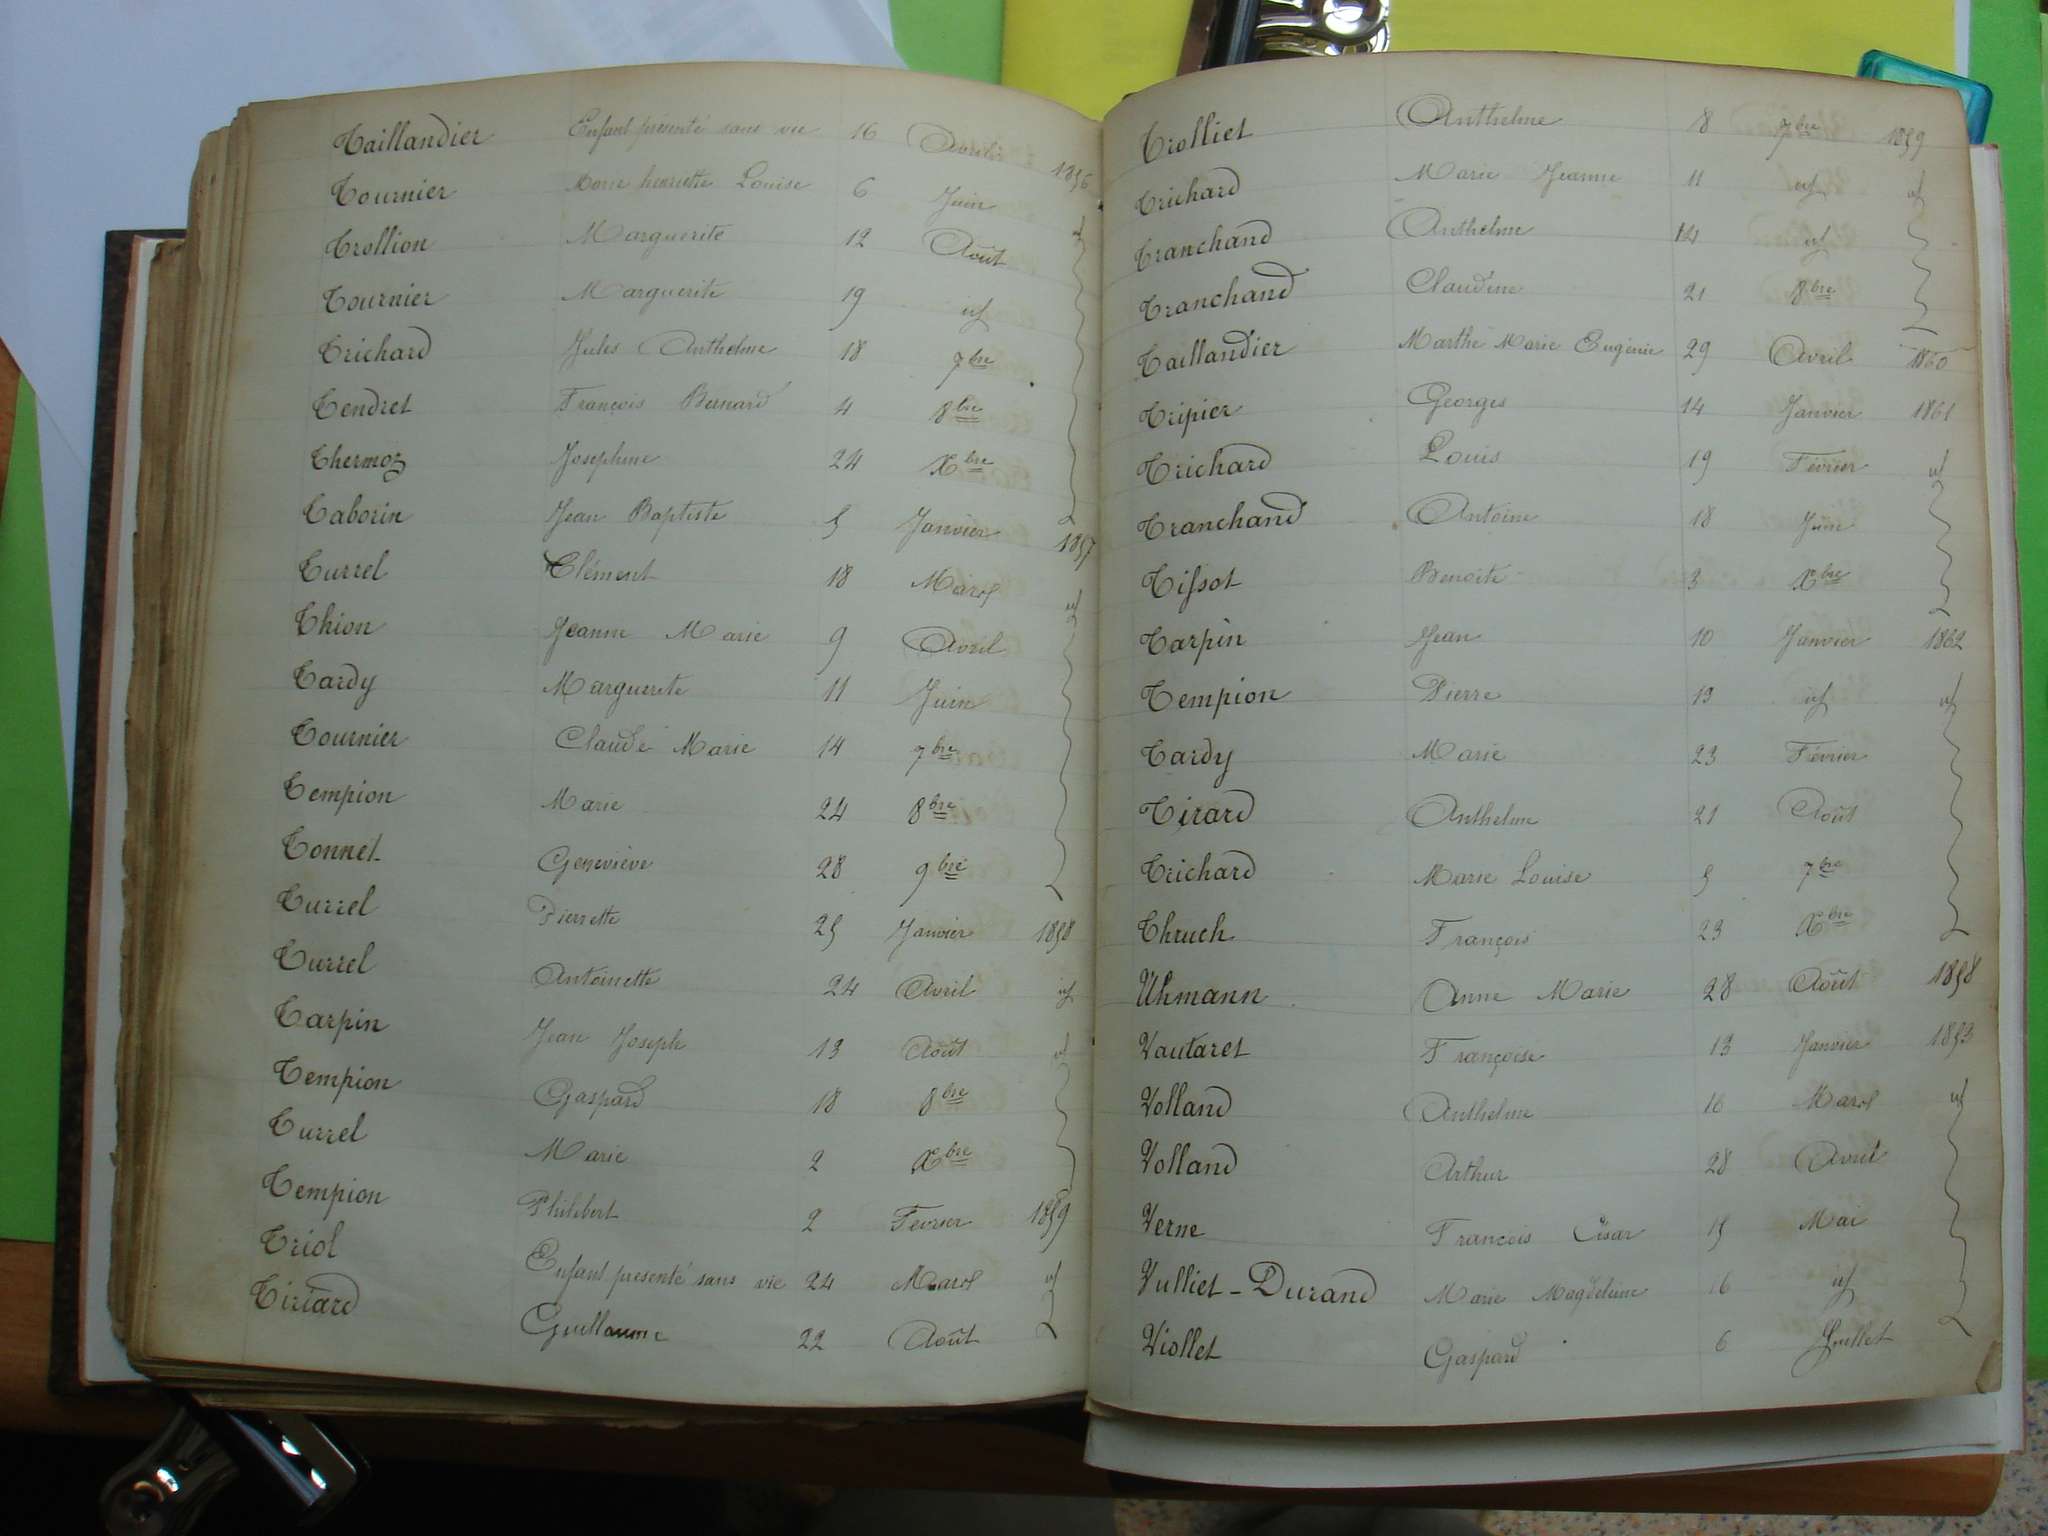 Taillandier Enfant présenté sans vie 16 Avril 1856
Tournier Marie henriette Louise 6 Juin id
Trollion Marguerite 12 Août
Tournier Marguerite 19 id
Trichard Jules Anthelme 18 7bre
Tendret François Bernard 4 8bre
Thermoz Josephine 24 Xbre
Taborin Jean Baptiste 5 Janvier 1857
Turrel Clément 18 Mars id
Thion Jeanne Marie 9 Avril
Tardy Marguerite 11 Juin
Tournier Claude Marie 14 7bre
Tempion Marie 24 8bre
Tonnet Geneviève 28 9bre
Turrel Pierrette 25 Janvier 1858
Turrel Antoinette 24 Avril id
Tarpin Jean Joseph 13 Août id
Tempion Gaspard 18 8bre
Turrel Marie 2 Xbre
Tempion Philibert 2 Fevrier 1859
Triol Enfant presenté sans vie 24 Mars id
Tiriard Guillaume 22 Août
Trolliet Anthelme 8 7bre 1859
Trichard Marie Jeanne 11 id id
Tranchand Anthelme 14 id
Tranchand Claudine 21 8bre
Taillandier Marthe Marie Eugénie 29 Avril 1860
Tripier Georges 14 Janvier 1861
Trichard Louis 19 Février id
Tranchand Antoine 18 Juin
Tissot Benoite 3 Xbre
Tarpin Jean 10 Janvier 1862
Tempion Pierre 13 id id
Tardy Marie 23 Février
Tirard Anthelme 21 Août
Trichard Marie Louise 5 7bre
Thruch François 23 Xbre
Uhmann Anne Marie 28 Août 1858
Vautaret Françoise 13 Janvier 1853
Volland Anthelme 16 Mars id
Volland Arthur 28 Avril
Verne François César 15 Mai
Vulliet-Durand Marie Magdeleine 16 id
Viollet Gaspard 6 Juillet